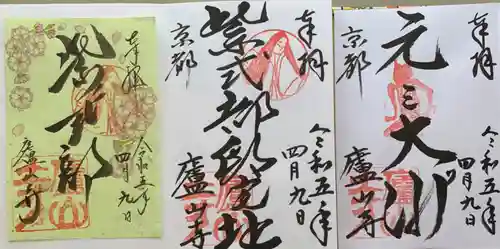 奉拝
紫式部
令和五年
四月九日
廬山寺
奉拝
京都
紫式部邸宅址
令和五年
四月九日
廬山寺
奉拝
京都
元三大師
令和五年
四月九日
廬山寺